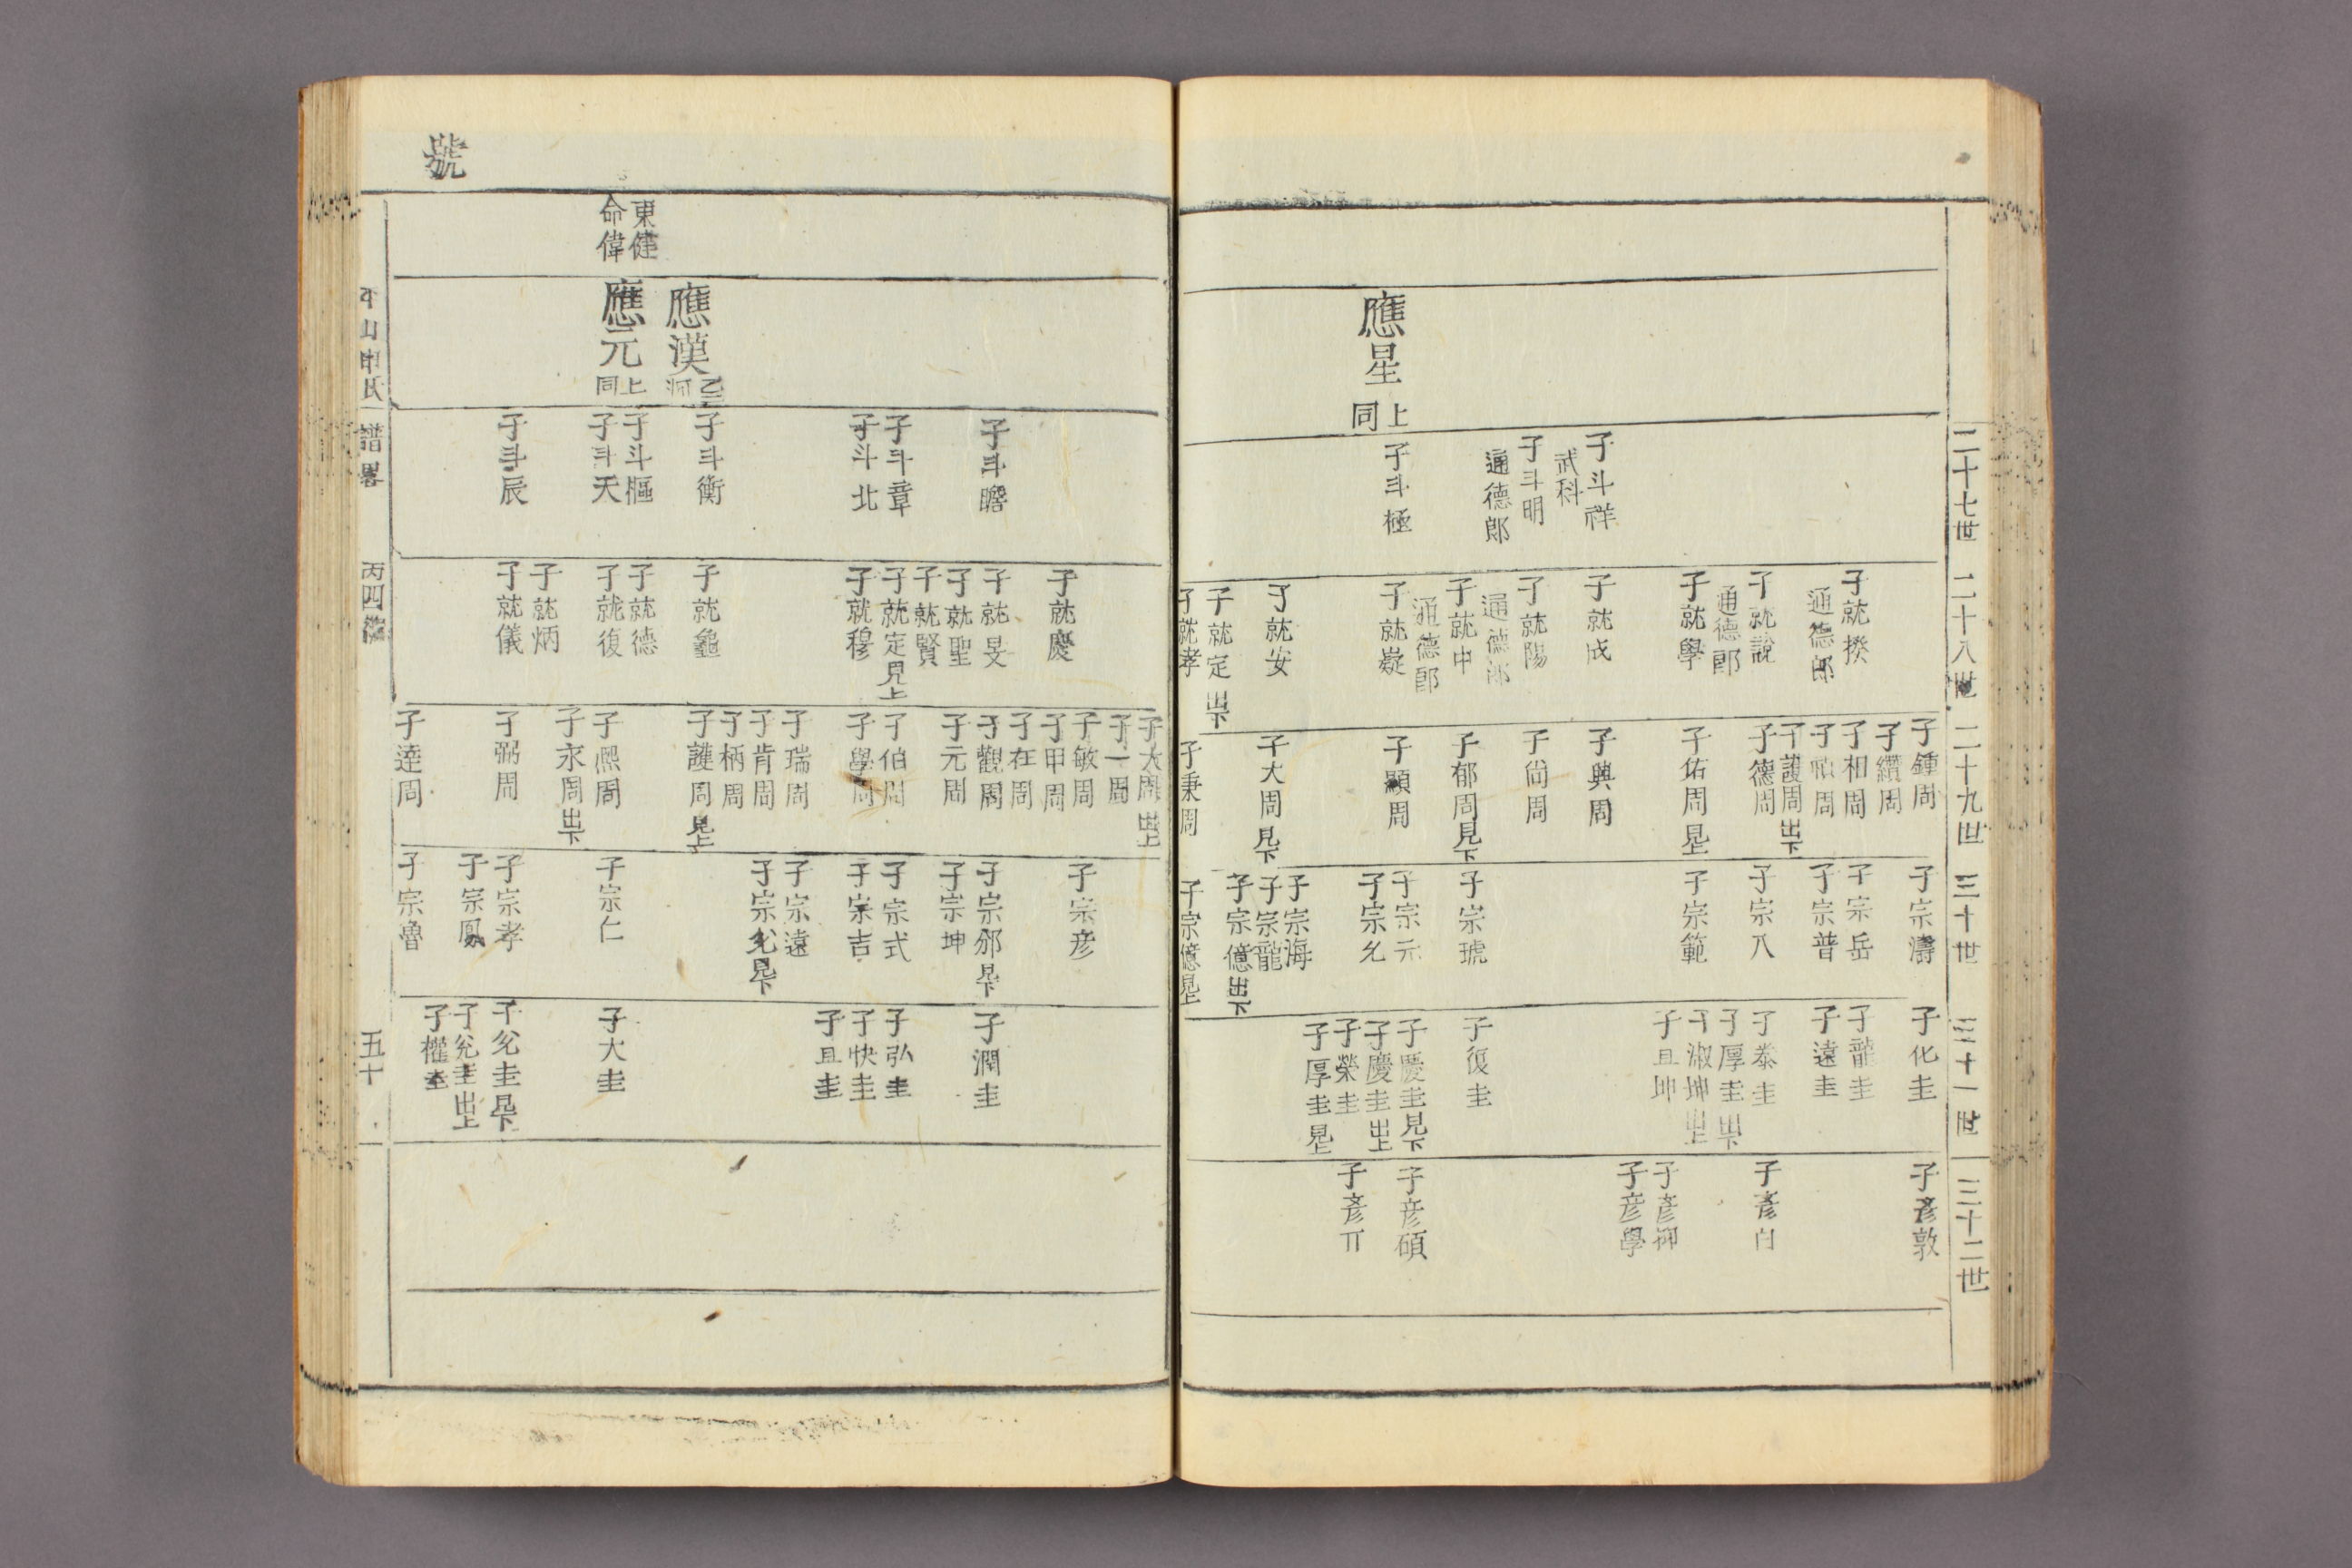 二十七世
二十八世
二十九世
三十世
三十一世
三十二世
應星 上同
子斗祥 武科
子斗明 通德郎
子斗極
子就揆 通德郎
子就說 通德郎
子就學
子就成
子就陽 通德郎
子就中 通德郎
子就嶷
子就安
子就定 出下
子就孝
子鍾周
子纘周
子相周
子禎周
子頀周 出下
子德周
子佑周 見上
子興周
子尙周
子郁周 見下
子顯周
子大周 見下
子秉周
子宗濤
子宗岳
子宗普
子宗八
子宗範
子宗琥
子宗元
子宗允
子宗海
子宗龍
子宗億 出下
子宗億 見上
子化圭
子龍圭
子遠圭
子泰圭
子厚圭 出下
子淑坤 出上
子且坤
子復圭
子慶圭 見下
子慶圭 出上
子榮圭
子厚圭 見上
子彥敦
子彥白
子彥柳
子彥學
子彥碩
子彥丌
號
東健
命偉
應漢
應元 上同
子斗瞻
子斗章
子斗北
子斗衡
子斗樞
子斗天
子斗辰
子就慶
子就旻
子就聖
子就賢
子就定 見上
子就穆
子就龜
子就德
子就復
子就炳
子就儀
子大周 出上
子一周
子敏周
子甲周
子在周
子觀周
子元周
子伯周
子學周
子瑞周
子肯周
子柄周
子頀周 見上
子熙周
子永周 出下
子弼周
子達周
子宗彦
子宗邠 見下
子宗坤
子宗式
子宗吉
子宗遠
子宗允 見下
子宗仁
子宗孝
子宗鳳
子宗魯
子潤圭
子弘圭
子快圭
子且圭
子大圭
子允圭 見下
子允圭 出上
子權圭
平山申氏
譜畧
丙四
五十